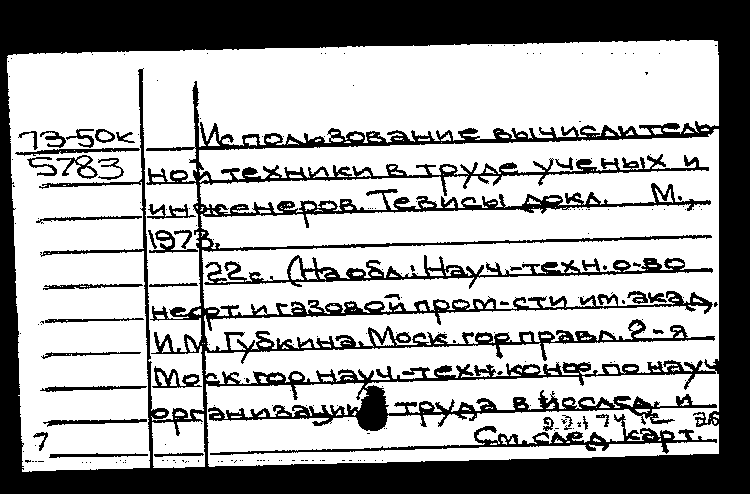 73-50к Использование вычислитель-
5783 ной техники в труде ученых и
инженеров. Тезисы докл. М.,
1973.
22с. (На обл.: Науч.-техн. о-во
нефт. и газовой пром-сти им. акад.
И.М. Губкина. Моск. гор. правл. 2-я
Моск. гор. науч.-техн. конф. по науч
организации труда в исслед. и
7 См. след. карт.